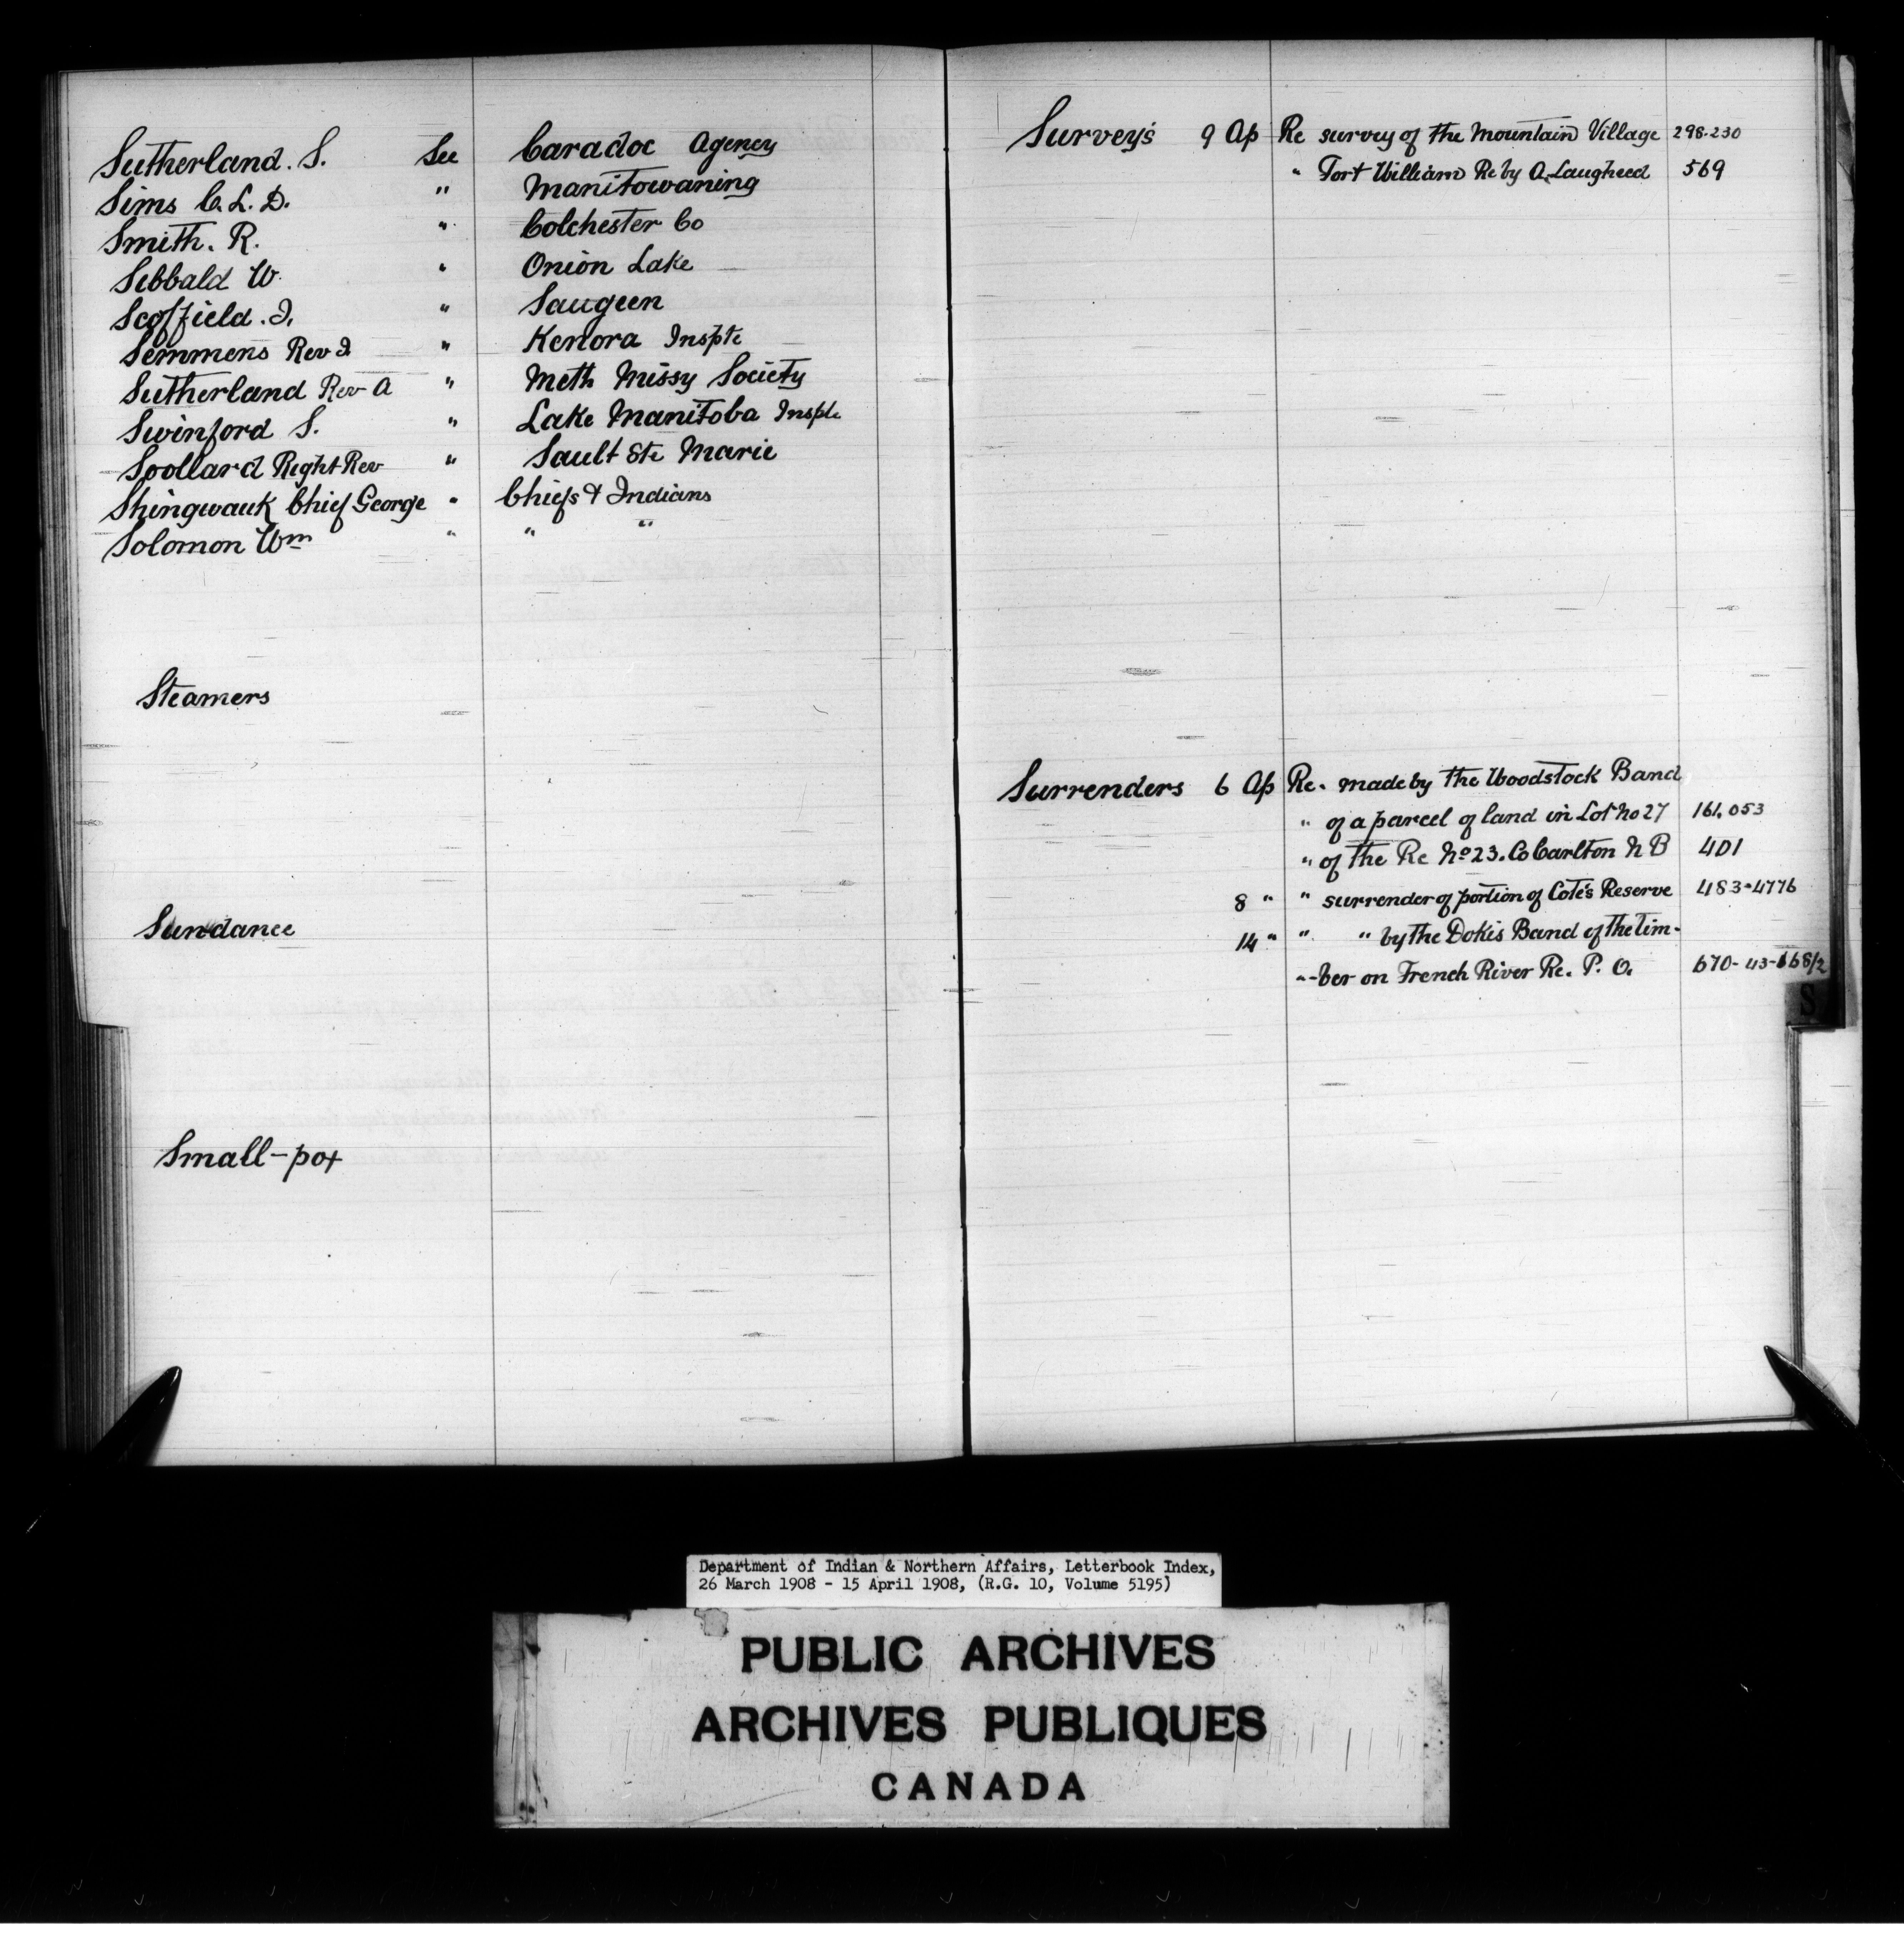 Sutherland. S. See Caradoc Agency
Sims C. L. D. " Manitowaning
Smith. R. " Colchester Co
Sibbald W. " Onion Lake
Scoffield. J. " Saugeen
Semmens Rev J " Kenora Inspte
Sutherland Rev A " Meth Missy Society
Swinford S. " Lake Manitoba Inspte
Scollard Right Rev " Sault Ste Marie
Shingwauk Chief George " Chiefs & Indians
Solomon Wm " " "
Steamers
Sundance
Small-pox
Survey's 9 Ap Re survey of the Mountain Village 298-230
" Fort William Re by A. Laugheed 569
Surrenders 6 Ap Re. made by the Woodstock Band
" of a parcel of land in Lot No 27 161,053
" of the Re No 23. Co Carlton N B 401
8 " " surrender of portion of Cote's Reserve 483-4776
14 " " " by the Dokis Band of the tim-
"-ber on French River Re. P. O. 670-43-668/2
S
Department of Indian & Northern Affairs, Letterbook Index,
26 March 1908 - 15 April 1908, (R.G. 10, Volume 5195)
PUBLIC ARCHIVES
ARCHIVES PUBLIQUES
CANADA